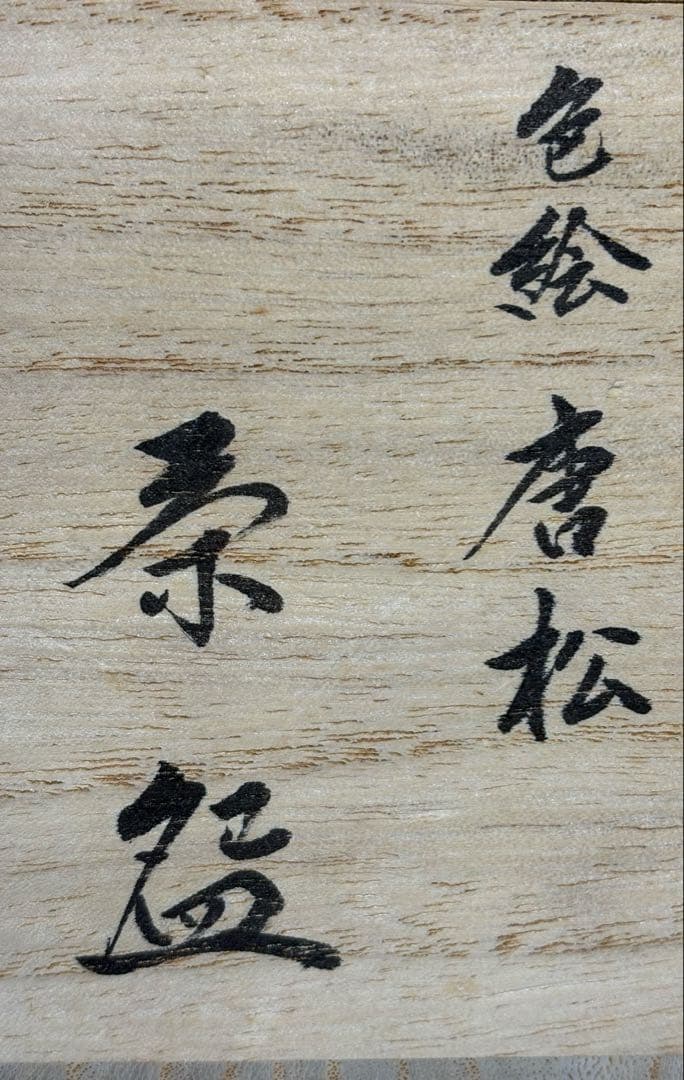 色絵唐松
茶盌